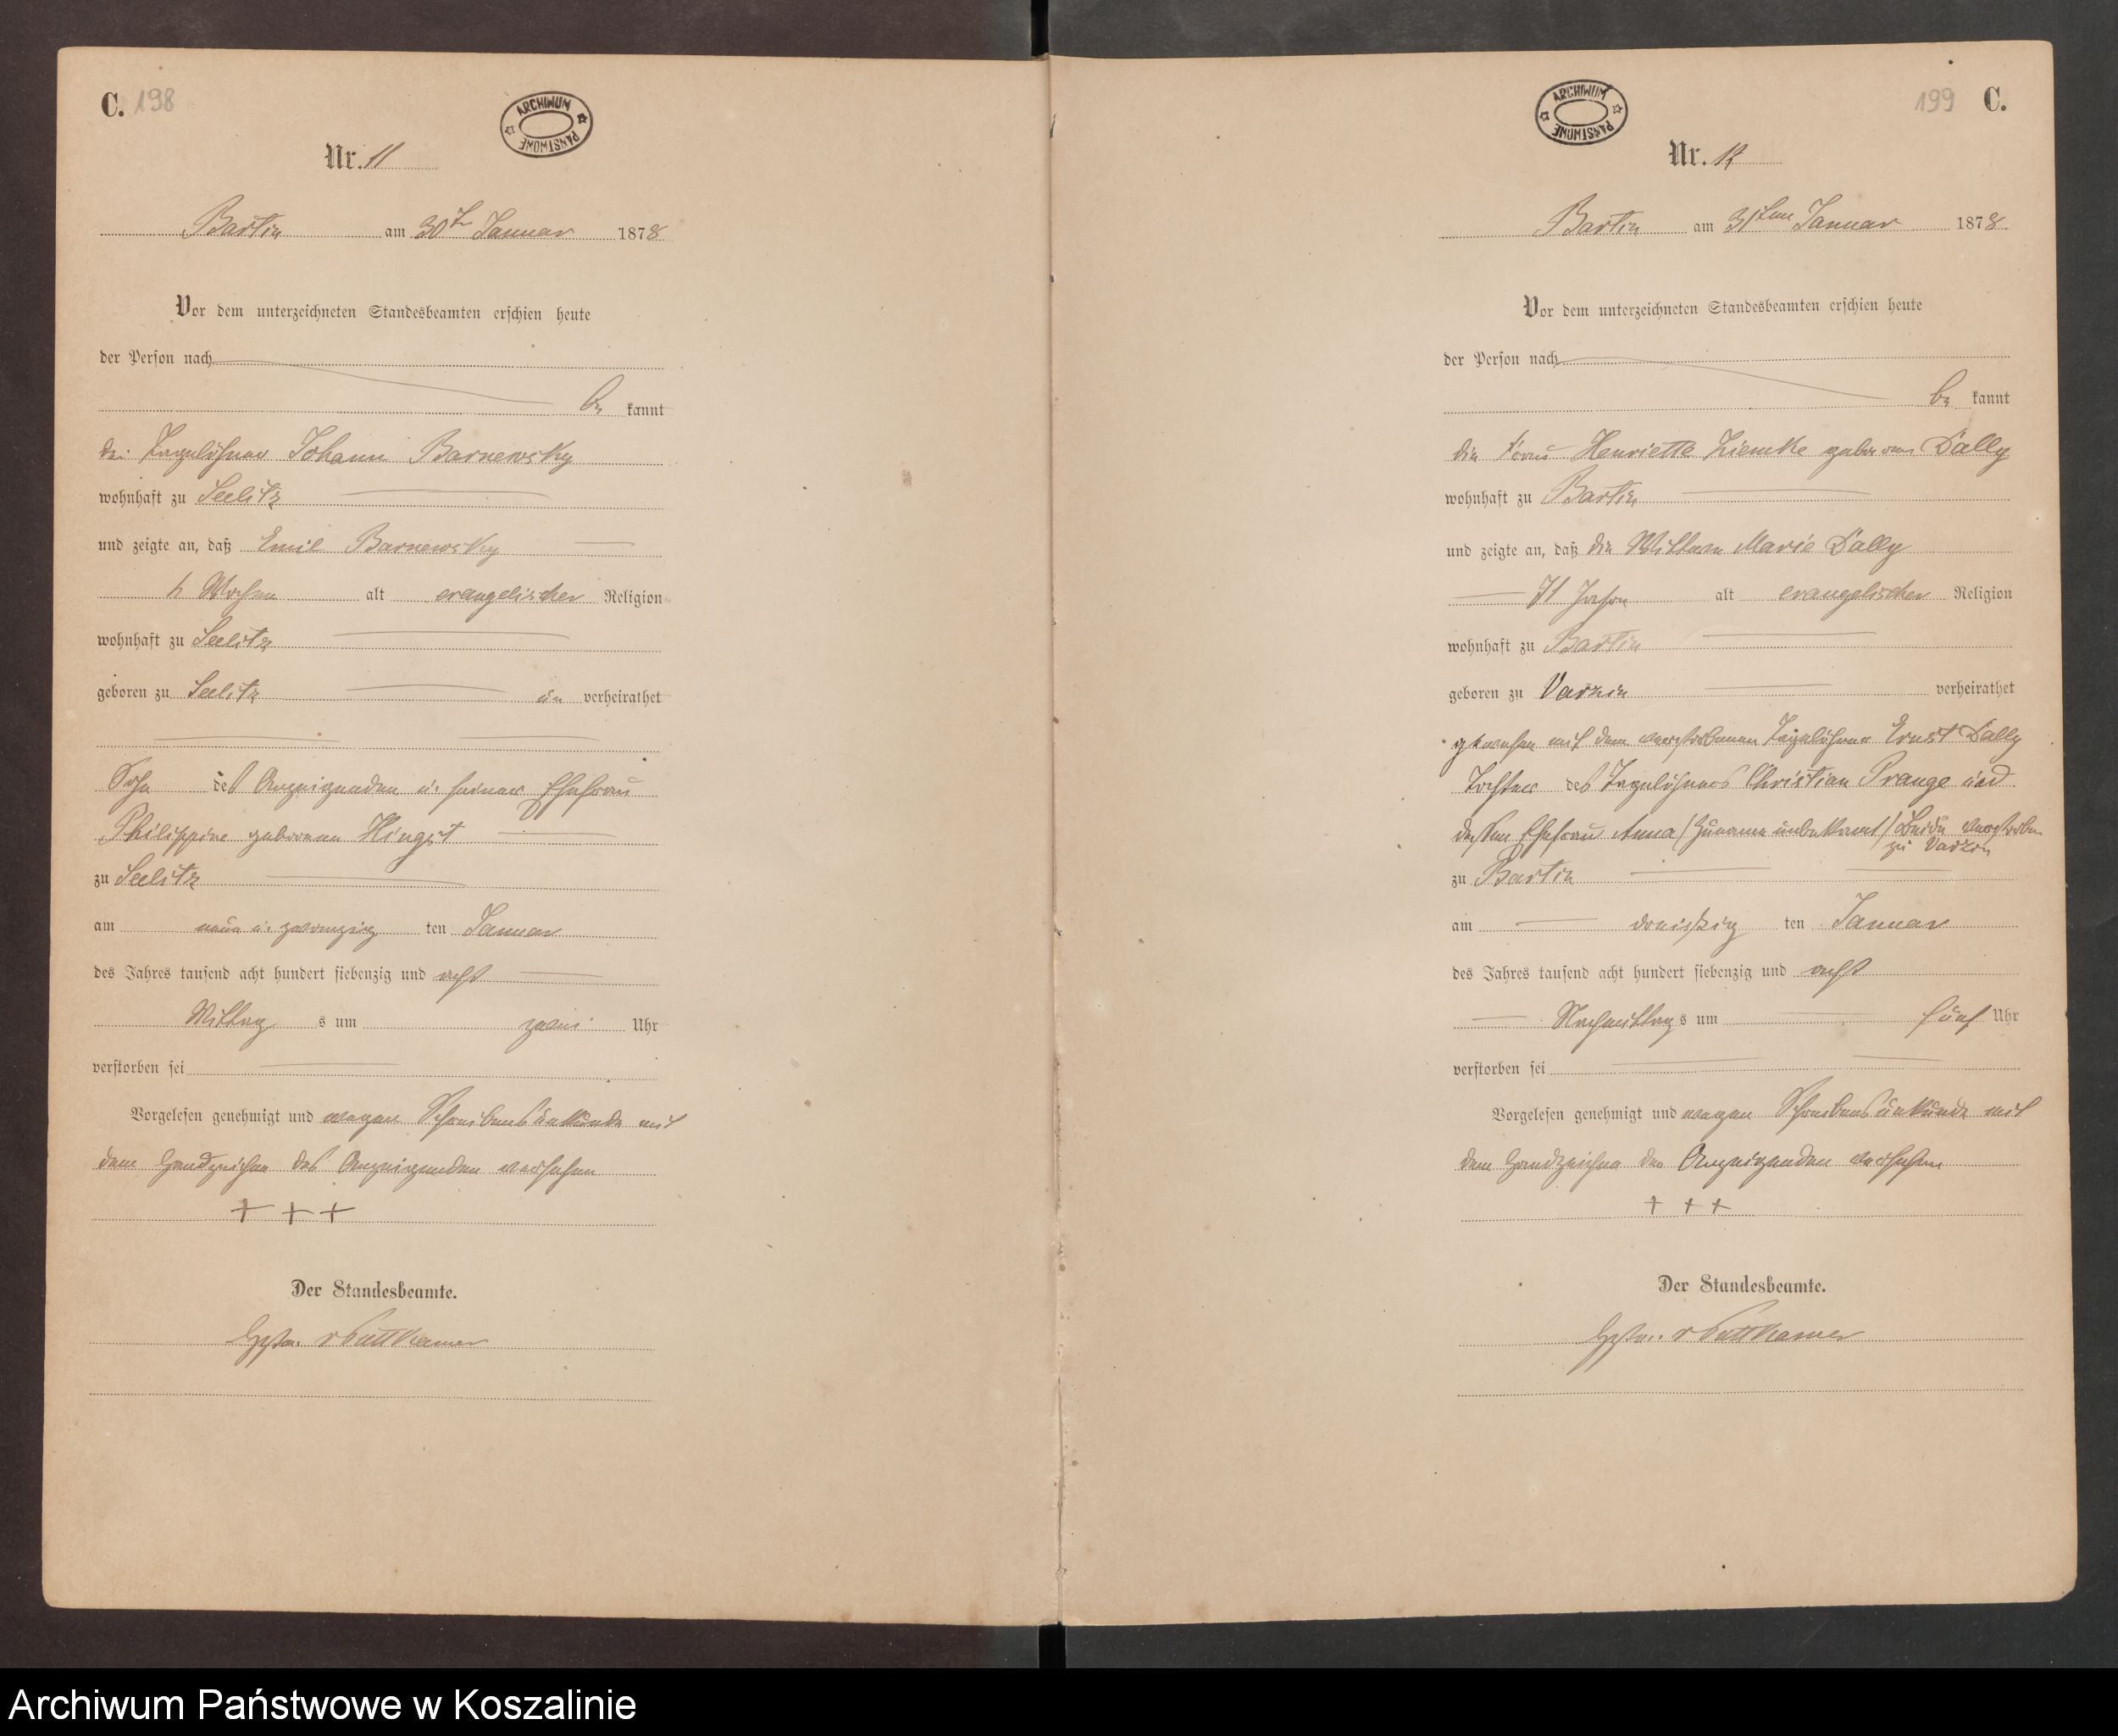 C. 198
ARCHIWUM PAŃSTWOWE
Nr. 11
Bartin am 30t Januar 1878
Vor dem unterzeichneten Standesbeamten erschien heute
der Person nach
be kannt
der Tagelöhner Johann Barnewsky
wohnhaft zu Seelitz
und zeigte an, daß Emil Barnewsky
Wochen alt evangelischer Religion
wohnhaft zu Seelitz
geboren zu Seelitz un verheirathet
Sohn des Anzeigenden u. seiner Ehefrau
Philippine geborenen Hingst
zu Seelitz
am neun u. zwanzig ten Januar
des Jahres tausend acht hundert siebenzig und acht
Mittag s um zwei Uhr
verstorben sei
Vorgelesen genehmigt und wegen Schreibensunkunde mit
dem Handzeichen des Anzeigenden versehen
+ + +
Der Standesbeamte.
v Puttkamer
199 C.
ARCHIWUM PAŃSTWOWE
Nr. 12
Bartin am 31ten Januar 1878
Vor dem unterzeichneten Standesbeamten erschien heute
der Person nach
be kannt
die Frau Henriette Ziemke geborene Dally
wohnhaft zu Bartin
und zeigte an, daß die Wittwe Marie Dally
71 Jahre alt evangelischer Religion
wohnhaft zu Bartin
geboren zu Varzin verheirathet
gewesen mit dem verstorbenen Tagelöhner Ernst Dally
Tochter des Tagelöhners Christian Prange und
dessen Ehefrau Anna /Zuname unbekannt/ Beide verstorben
zu Varzin
zu Bartin
am dreißig ten Januar
des Jahres tausend acht hundert siebenzig und acht
Nachmittag s um fünf Uhr
verstorben sei
Vorgelesen genehmigt und wegen Schreibensunkunde mit
dem Handzeichen der Anzeigenden versehen
+ + +
Der Standesbeamte.
v Puttkamer
Archiwum Państwowe w Koszalinie